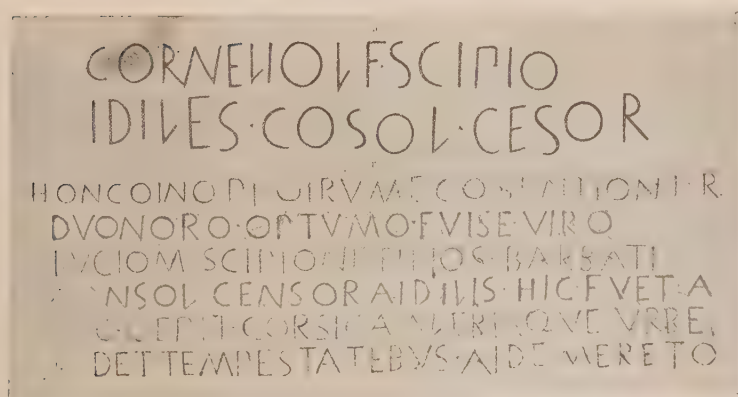 CORNELIO L F SCIPIO
IDILES·COSOL·CESOR
HONC OINO PLOIRVME COSENTIONT R
DVONORO·OPTVMO·FVISE·VIRO
LVCIOM SCIPIONE FILIOS·BARBATI
NSOL CENSOR AIDILIS·HIC FVET·A
CEPIT·CORSICA ALERIAQVE VRBE
DET TEMPESTATEBVS·AIDE MERETO